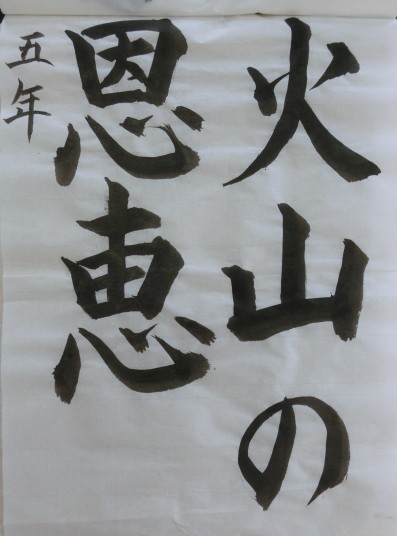 火山の
恩恵
五年